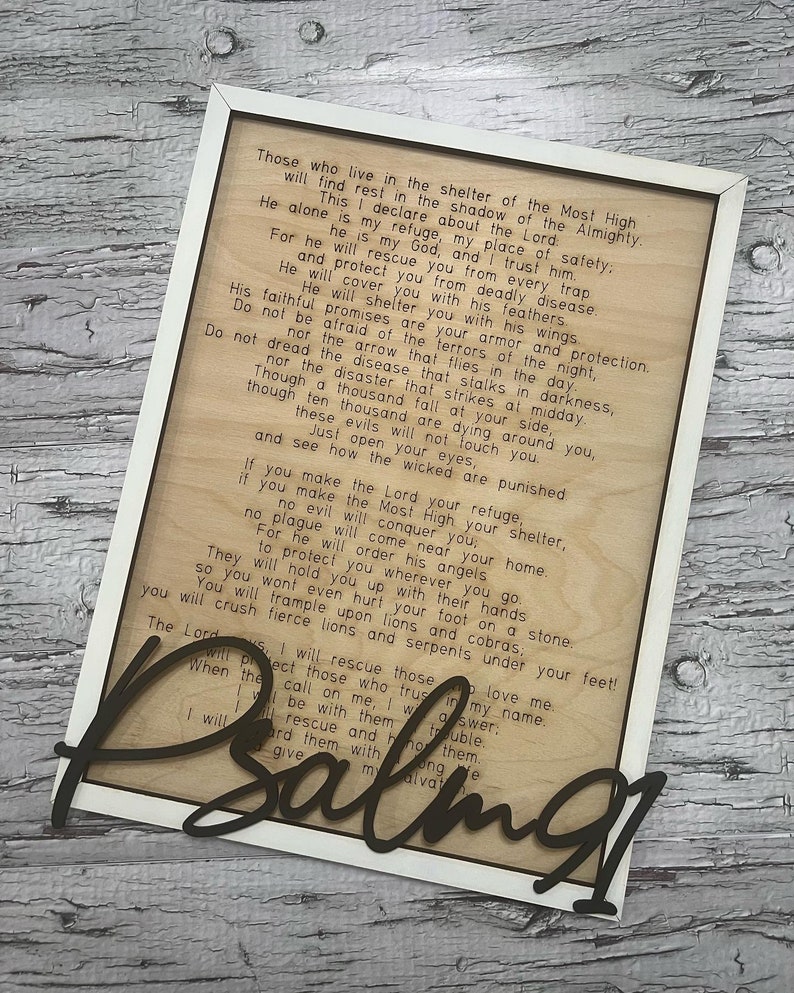 Those who live in the shelter of the Most High
will find rest in the shadow of the Almighty.
This I declare about the Lord:
He alone is my refuge, my place of safety;
he is my God, and I trust him.
For he will rescue you from every trap
and protect you from deadly disease.
He will cover you with his feathers.
He will shelter you with his wings.
His faithful promises are your armor and protection.
Do not be afraid of the terrors of the night,
nor the arrow that flies in the day.
Do not dread the disease that stalks in darkness,
nor the disaster that strikes at midday.
Though a thousand fall at your side,
though ten thousand are dying around you,
these evils will not touch you.
Just open your eyes,
and see how the wicked are punished
If you make the Lord your refuge,
if you make the Most High your shelter,
no evil will conquer you;
no plague will come near your home.
For he will order his angels
to protect you wherever you go.
They will hold you up with their hands
so you wont even hurt your foot on a stone.
You will trample upon lions and cobras;
you will crush fierce lions and serpents under your feet!
The Lord I will rescue those love me.
will protect those who trust in my name.
When they call on me, I will answer;
I will be with them trouble.
I will rescue and them.
I will them with long life
give my
Psalm 91